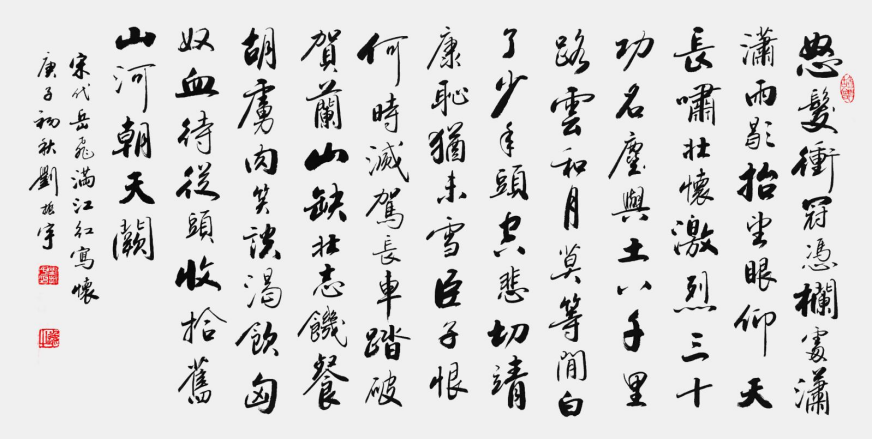 怒髮衝冠憑欄處瀟
瀟雨歇抬望眼仰天
長嘯壯懷激烈三十
功名塵與土八千里
路雲和月莫等閒白
了少年頭空悲切靖
康恥猶未雪臣子恨
何時滅駕長車踏破
賀蘭山缺壯志饑餐
胡虜肉笑談渴飲匈
奴血待從頭收拾舊
山河朝天
宋代岳飛滿江紅寫懷
庚子初秋劉宇